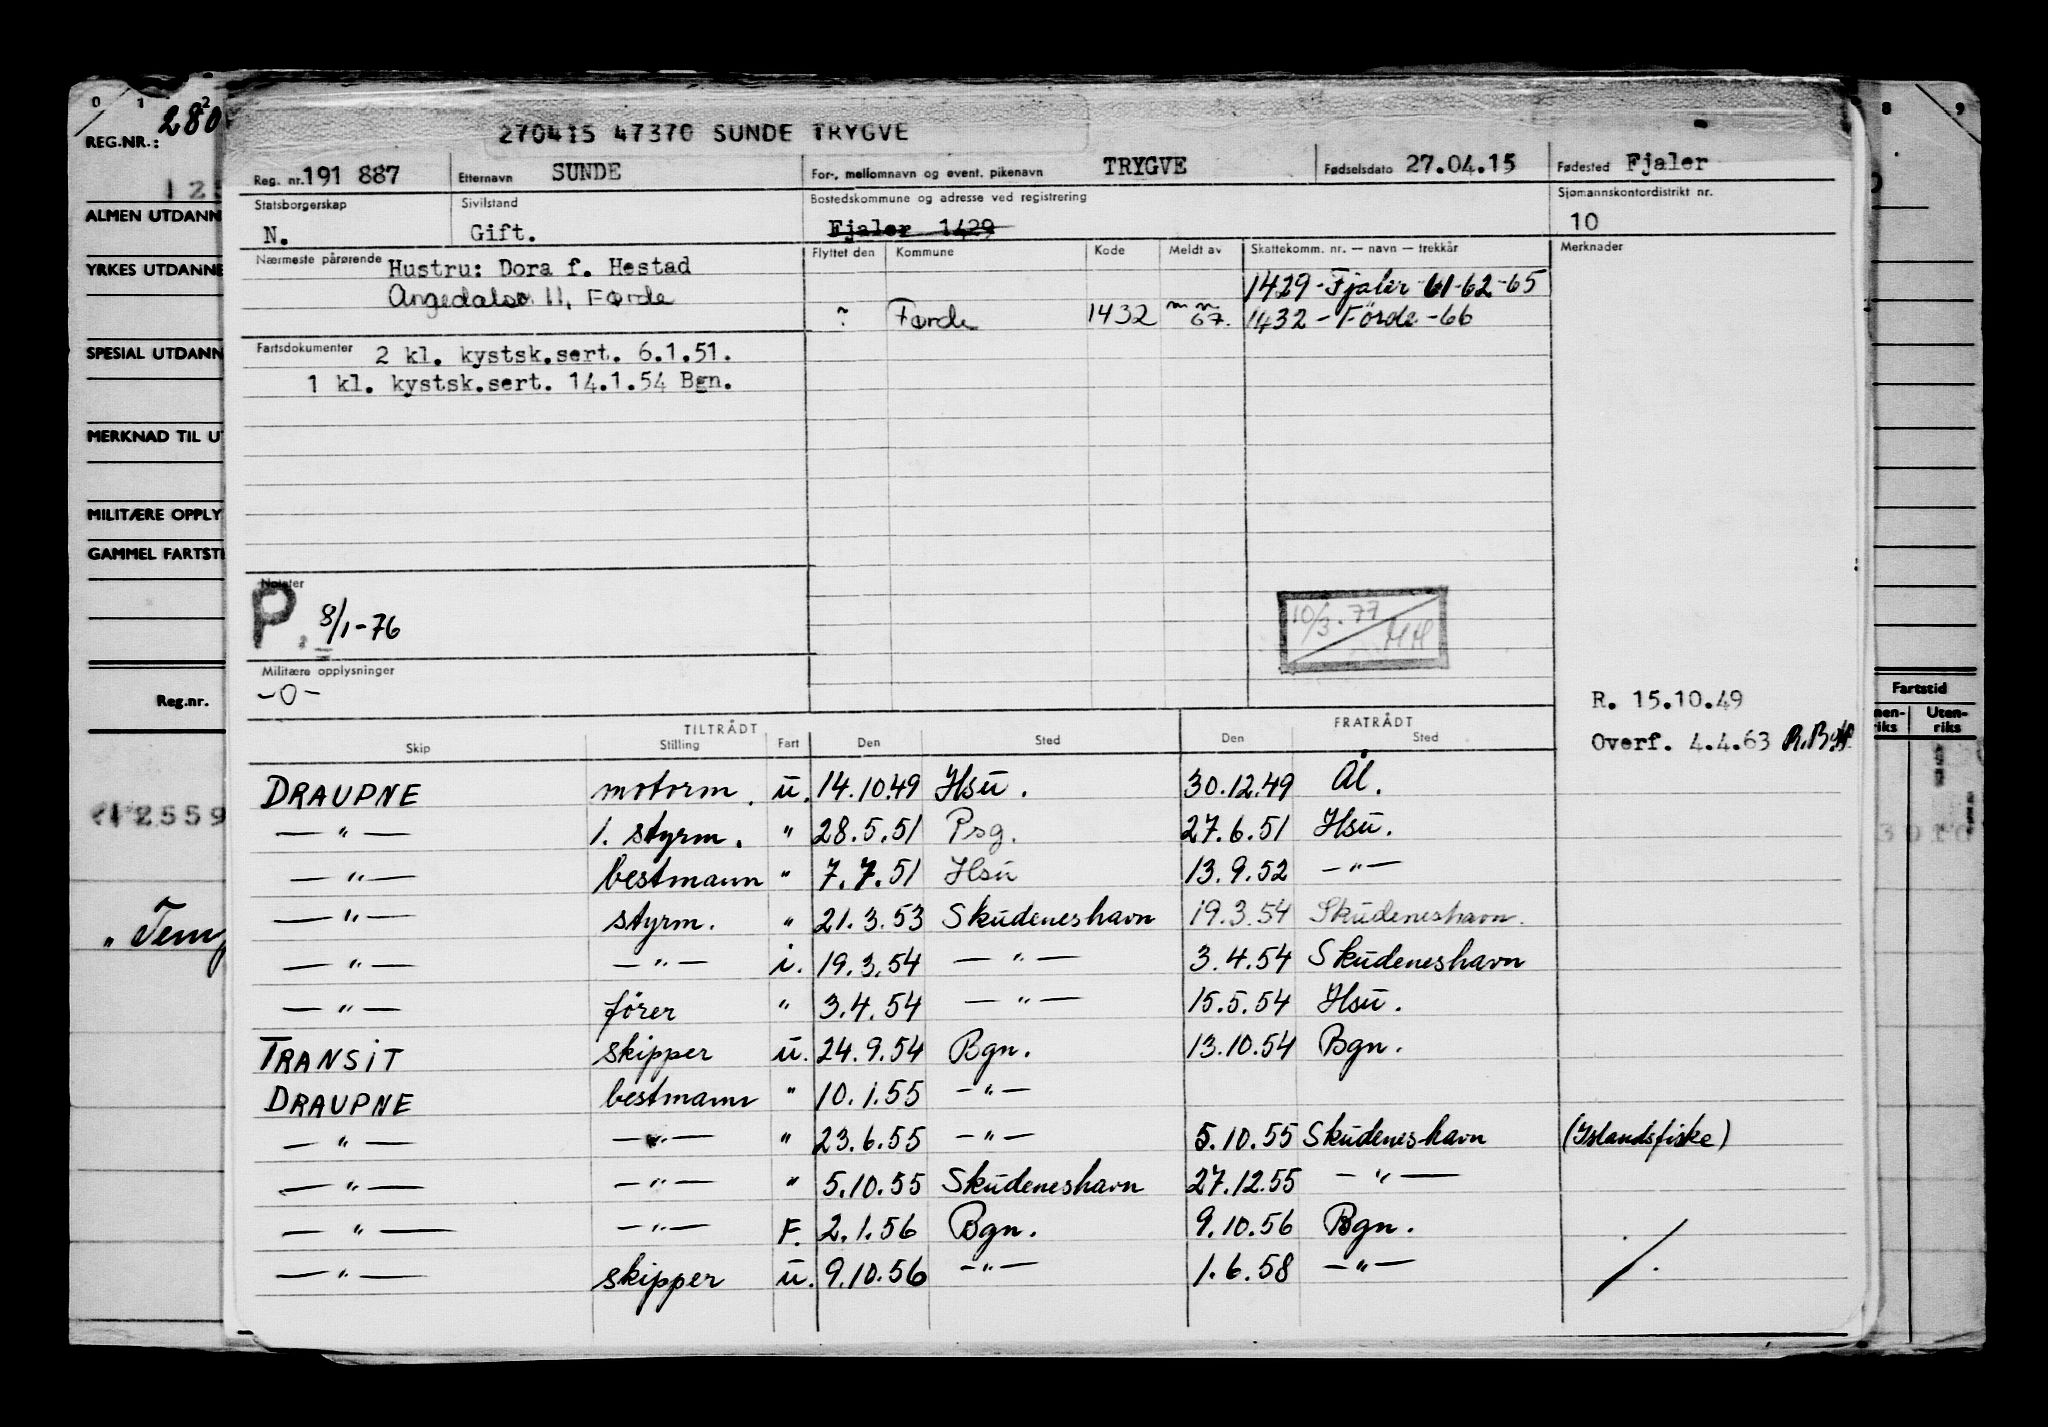 0 1 2
REG.NR.: 280
125
ALMEN UTDANN
YRKES UTDANNE
SPESIAL UTDANN
MERKNAD TIL U
MILITÆRE OPPLY
GAMMEL FARTSTI
Reg.nr.
2559
8 9
Fartstid
Uten-
riks
270415 47370 SUNDE TRYGVE
Reg. nr. 191 887 Etternavn SUNDE For-, mellomnavn og event. pikenavn TRYGVE Fødselsdato 27.04.15 Fødested Fjaler
Statsborgerskap Sivilstand Bostedskommune og adresse ved registrering Sjømannskontordistrikt nr.
N. Gift. Fjaler 1429 10
Nærmeste pårørende Hustru: Dora f. Hestad Flyttet den Kommune Kode Meldt av Skattekomm. nr. — navn — trekkår Merknader
1429 - Fjaler 61-62-65
Angedalsv 11, Førde
? Førde 1432 m n 67. 1432 - Förde - 66
Fartsdokumenter 2 kl. kystsk.sert. 6.1.51.
1 kl. kystsk.sert. 14.1.54 Bgn.
Notater
P. 8/1-76
10/3.77 HH
Militære opplysninger
-0-
R. 15.10.49
Overf. 4.4.63
TILTRÅDT FRATRÅDT
Skip Stilling Fart Den Sted Den Sted
DRAUPNE motorm. u. 14.10.49 Hsu. 30.12.49 Ål.
— " — 1. styrm. " 28.5.51 Psg. 27.6.51 Hsu.
— " — bestmann " 7.7.51 Hsu 13.9.52 — " —
— " — styrm. " 21.3.53 Skudeneshavn 19.3.54 Skudeneshavn.
— " — — " — i. 19.3.54 — " — 3.4.54 Skudeneshavn
— " — förer " 3.4.54 — " — 15.5.54 Hsu.
TRANSIT skipper u. 24.9.54 Bgn. 13.10.54 Bgn.
DRAUPNE bestmann " 10.1.55 — " —
— " — — " — " 23.6.55 — " — 5.10.55 Skudeneshavn (Islandsfiske)
— " — — " — " 5.10.55 Skudeneshavn 27.12.55 — " —
— " — — " — F. 2.1.56 Bgn. 9.10.56 Bgn.
— " — skipper u. 9.10.56 — " — 1.6.58 — " —